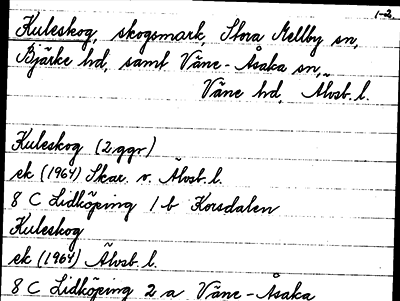 1-2.
Kuleskog, skogsmark, Stora Mellby sn,
Bjärke hd, samt Väne-Åsaka sn,
Väne hd, Älvsb. l.
Kuleskog (2 ggr)
ek (1964) Skar. o. Älvsb. l.
8 C Lidköping 1 b Korsdalen
Kuleskog
ek (1964) Älvsb. l.
8 C Lidköping 2 a Väne-Åsaka